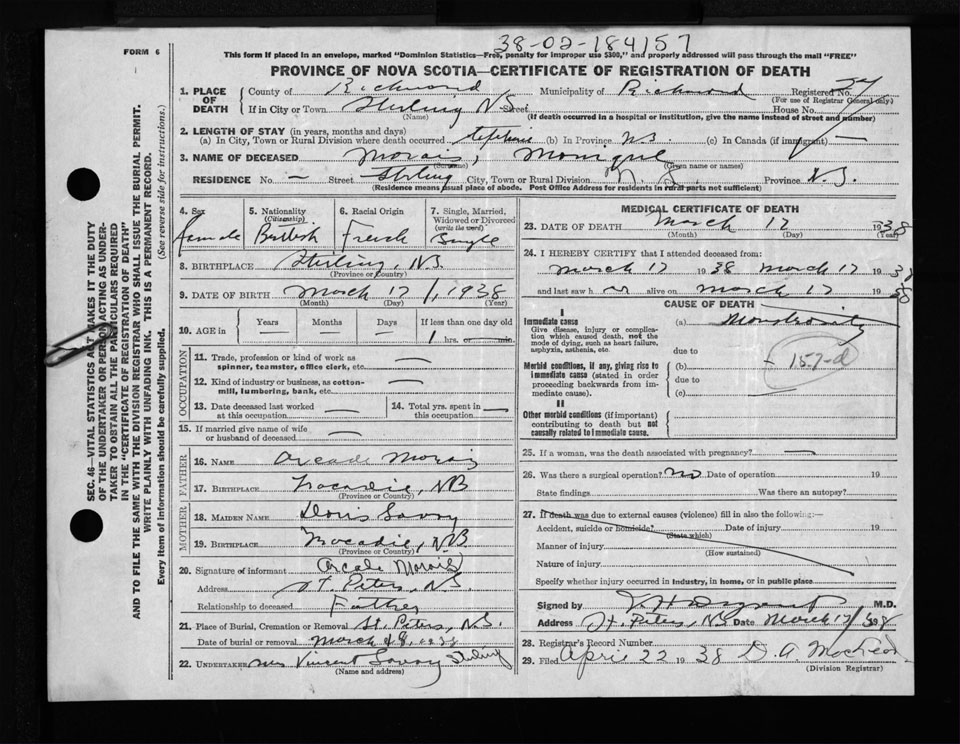 38-02-184157
FORM 6
This form if placed in an envelope, marked "Dominion Statistics—Free, penalty for improper use $300," and properly addressed will pass through the mail "FREE"
PROVINCE OF NOVA SCOTIA—CERTIFICATE OF REGISTRATION OF DEATH
1. PLACE OF DEATH County of Richmond Municipality of Richmond Registered No.
(For use of Registrar General only)
If in City or Town Stirling N.S. Street House No.
(Name) (If death occurred in a hospital or institution, give the name instead of street and number)
2. LENGTH OF STAY (in years, months and days)
(a) In City, Town or Rural Division where death occurred lifetime (b) In Province N.S. (c) In Canada (if immigrant) —
3. NAME OF DECEASED Morais, Monique
(Surname) (Given name or names)
RESIDENCE No. — Street Stirling City, Town or Rural Division N.S. Province N.S.
(Residence means usual place of abode. Post Office Address for residents in rural parts not sufficient)
4. Sex female
5. Nationality (Citizenship) British
6. Racial Origin French
7. Single, Married, Widowed or Divorced (write the word) Single
8. BIRTHPLACE Stirling, N.S.
(Province or Country)
9. DATE OF BIRTH March 17, 1938
(Month) (Day) (Year)
10. AGE in Years — Months — Days — If less than one day old 1 hrs. or min
OCCUPATION
11. Trade, profession or kind of work as spinner, teamster, office clerk, etc. —
12. Kind of industry or business, as cotton-mill, lumbering, bank, etc. —
13. Date deceased last worked at this occupation —
14. Total yrs. spent in this occupation —
15. If married give name of wife or husband of deceased —
FATHER
16. NAME Arcade Morais
17. BIRTHPLACE Tracadie, NB
(Province or Country)
MOTHER
18. MAIDEN NAME Doris Savoy
19. BIRTHPLACE Tracadie, N.B.
(Province or Country)
20. Signature of informant Arcade Morais
Address St. Peters, N.S.
Relationship to deceased Father
21. Place of Burial, Cremation or Removal St. Peters, N.S.
Date of burial or removal March 18, 1938
22. UNDERTAKER Mrs Vincent Savoy Stirling
(Name and address)
MEDICAL CERTIFICATE OF DEATH
23. DATE OF DEATH March 17 1938
(Month) (Day) (Year)
24. I HEREBY CERTIFY that I attended deceased from:
March 17 1938 March 17 1938
and last saw her alive on March 17 1938
CAUSE OF DEATH
I
Immediate cause (a) Monstrosity
Give disease, injury or complication which caused death, not the mode of dying, such as heart failure, asphyxia, asthenia, etc.
due to
Morbid conditions, if any, giving rise to immediate cause (stated in order proceeding backwards from immediate cause).
(b) —
due to
(c)
157-d
II
Other morbid conditions (if important) contributing to death but not causally related to immediate cause.
25. If a woman, was the death associated with pregnancy? —
26. Was there a surgical operation? no Date of operation 19
State findings Was there an autopsy?
27. If death was due to external causes (violence) fill in also the following:—
Accident, suicide or homicide? Date of injury 19
(State which)
Manner of injury
(How sustained)
Nature of injury
Specify whether injury occurred in industry, in home, or in public place
Signed by M.D.
Address St. Peters, N.S. Date March 17/38
28. Registrar's Record Number
29. Filed April 22 1938 D. A. MacLeod
(Division Registrar)
SEC. 46—VITAL STATISTICS ACT MAKES IT THE DUTY
OF THE UNDERTAKER OR PERSON ACTING AS UNDER-
TAKER TO OBTAIN ALL THE PARTICULARS REQUIRED
IN THE "CERTIFICATE OF REGISTRATION OF DEATH"
AND TO FILE THE SAME WITH THE DIVISION REGISTRAR WHO SHALL ISSUE THE BURIAL PERMIT.
WRITE PLAINLY WITH UNFADING INK. THIS IS A PERMANENT RECORD.
Every item of information should be carefully supplied. (See reverse side for instructions.)